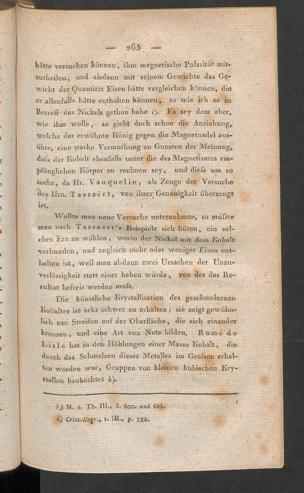 — 265 —
hätte versuchen können, ihm magnetische Polarität mit-
zutheilen, und alsdann mit seinem Gewichte das Ge-
wicht der Quantität Eisen hätte vergleichen können, die
er allenfalls hätte enthalten können, so wie ich es in
Betreff des Nickels gethan habe i). Es sey dem aber,
wie ihm wolle, so giebt doch schon die Anziehung,
welche der erwähnte König gegen die Magnetnadel aus-
übte, eine starke Vermuthung zu Gunsten der Meinung,
daſs der Kobalt ebenfalls unter die des Magnetismus em-
pfänglichen Körper zu rechnen sey, und dieſs um so
mehr, da Hr. Vauquelin, als Zeuge der Versuche
des Hrn. Tassaert, von ihrer Genauigkeit überzeugt
ist.
Wollte man neue Versuche unternehmen, so müſste
man nach Tassaert's Beispiele sich hüten, ein sol-
ches Erz zu wählen, worin der Nickel mit dem Kobalt
verbunden, und zugleich mehr oder weniger Eisen ent-
halten ist, weil man alsdann zwei Ursachen der Unzu-
verlässigkeit statt einer haben würde, von der das Re-
sultat befreit werden muſs.
Die künstliche Krystallisation des geschmolzenen
Kobaltes ist sehr schwer zu erhalten; sie zeigt gewöhn-
lich nur Streifen auf der Oberfläche, die sich einander
kreuzen, und eine Art von Netz bilden, Romé de
Lisle hat in den Höhlungen einer Masse Kobalt, die
durch das Schmelzen dieses Metalles im Groſsen erhal-
ten worden war, Gruppen von kleinen kubischen Kry-
stallen beobachtet k).
i) M. s. Th. III., S. 600. und 601.
k) Cristallogr., t. III., p. 122.